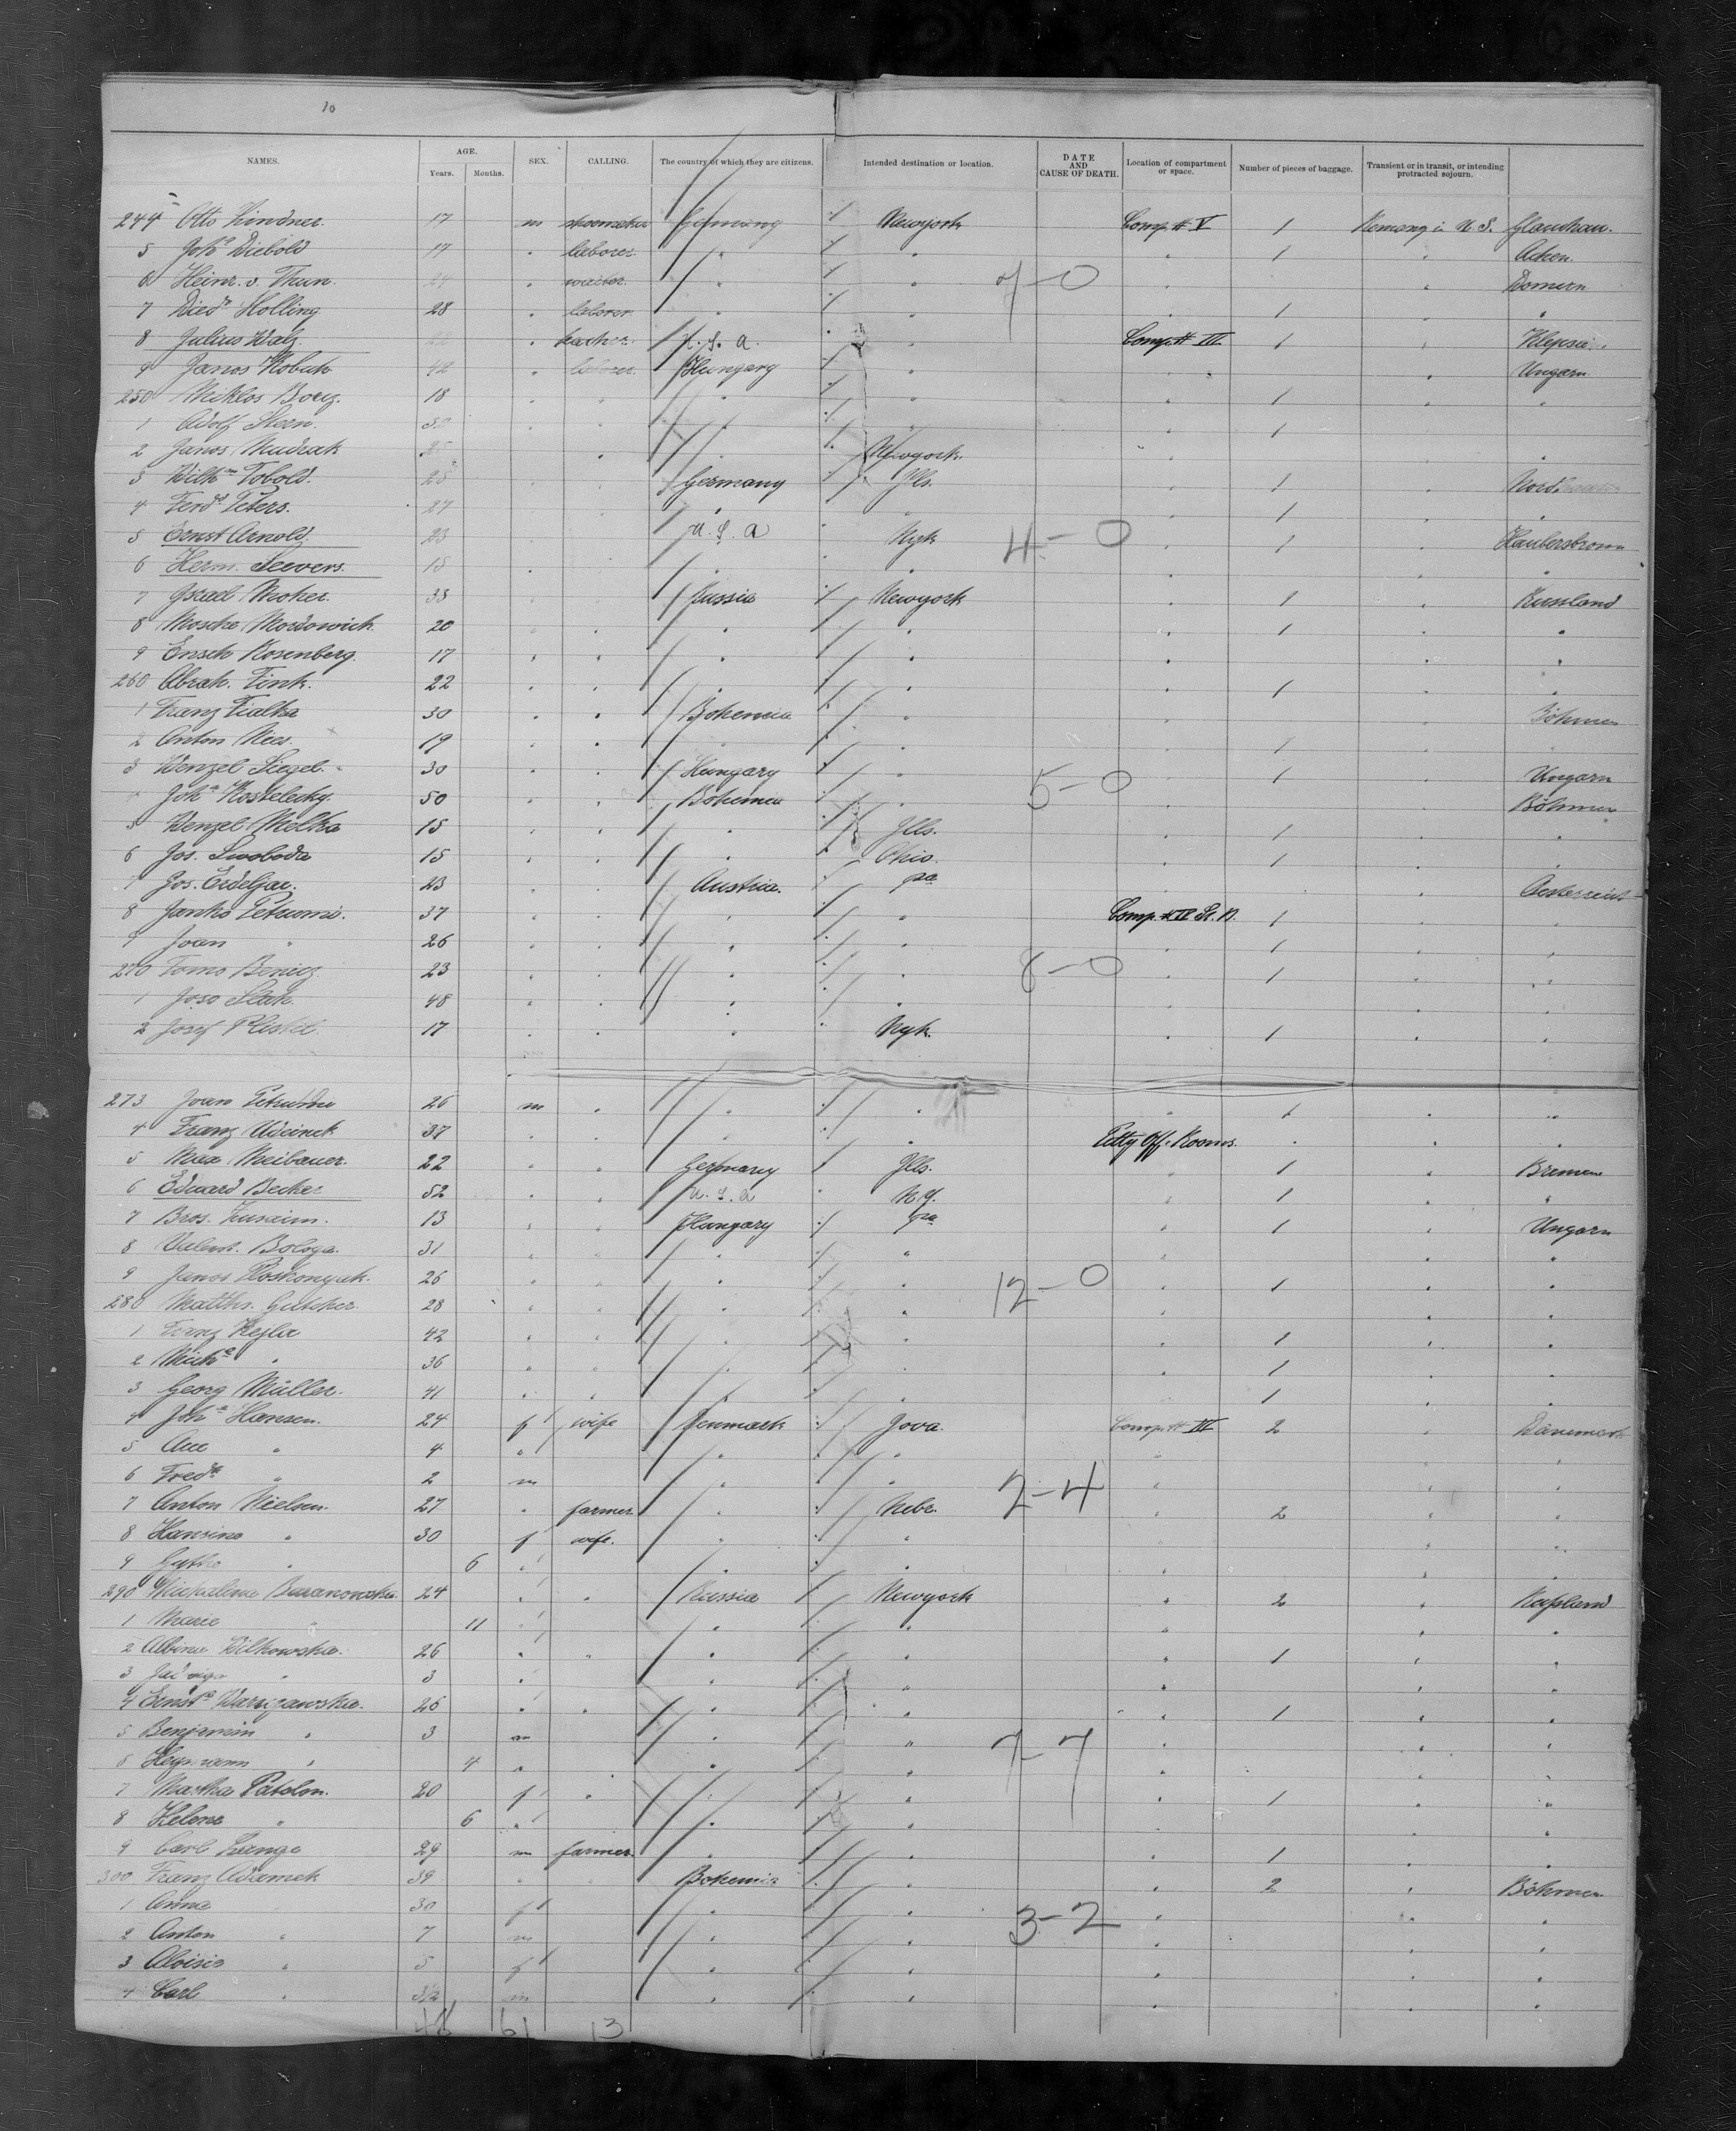 10
NAMES. AGE. Years. Months. SEX. CALLING. The country of which they are citizens. Intended destination or location. DATE AND CAUSE OF DEATH. Location of compartment or space. Number of pieces of baggage. Transient or in transit, or intending protracted sojourn.
244 Otto Lindner. 17 m shoemaker Germany Newyork Comp. # V 1 Remang in U.S. Glauchau.
5 Joh. Diebold 17 " laborer " " " 1 " Acken
6 Heinr. v. Thun. 24 " " " " " Domern
7 Died. Holling 28 " laborer " " " 1 " "
8 Julius Walz. " U.S.A. " Comp. # III 1 "
9 Janos Kobuk 42 " laborer Hungary " " " Ungarn
250 Miklos 18 " " " " " 1 " "
1 Adolf Stern. " " " " " 1 "
2 Janos Mudrak 25 " " Newyork. " " "
3 Wilh. Tobold. 25 " " Germany Ills. " 1 "
4 Ferd. Peters. 27 " " " " " 1 " "
5 Ernst Arnold. 23 " " U.S.A Nyk " 1 " Haubersbronn
6 Herm. Seevers. 15 " " " " " " "
7 Israel Moker. 33 " " Russia Newyork " 1 " Russland
8 Mosche Mordowich. 20 " " " " " 1 " "
9 Ensch Rosenberg. 17 " " " " " " "
260 Abrah. Fink. 22 " " " " " 1 " "
1 Franz Fialka 30 " " Bohemia " " " Böhmen
2 Anton Nees. 19 " " " " " 1 " "
3 Wenzel Siegel. 30 " " Hungary " " 1 " Ungarn
Joh. Kostelecky. 50 " " Bohemia " " " Böhmen
5 Wenzel Melka 15 " " " Ills. " 1 " "
6 Jos. Swoboda 15 " " " Ohio. " 1 " "
7 Jos. Erdeljac. 23 " " Austria. Pa " " Oesterreich
8 Janko Petrunic. 37 " " " " Comp. # III St. B. 1 " "
9 Joan " 26 " " " " " 1 " "
270 Tomo Benicz 23 " " " " " 1 " "
1 Joso Stak. 48 " " " " " " "
2 Josef 17 " " " Nyk. " 1 " "
273 Joan 26 m " " " " 1 " "
4 Franz 37 " " " " Petty Off. Rooms. " " "
5 Max Meibauer. 22 " " Germany Ills. " 1 " Bremen
6 Eduard Becker 52 " " U.S.A N.Y. " 1 " "
7 Bros. 13 " " Hungary Pa " 1 " Ungarn
8 Valent. Bologa. 31 " " " " " " "
9 Janos 26 " " " " " 1 " "
280 Matths. Gutcher. 28 " " " " " " "
1 Franz Kejla 42 " " " " " 1 " "
2 Mich. " 36 " " " " " 1 " "
3 Georg Müller. 41 " " " " " 1 " "
4 Joh. Hansen. 24 f wife Denmark Jova. Comp. # III 2 " Dänemark
5 Ane " 4 " " " " " "
6 Fred. " 2 m " " " " "
7 Anton Nielsen. 27 " farmer " Nebr. " 2 " "
8 Hansine " 30 f wife. " " " " "
9 " 6 " " " " " "
290 Michalina Buranowska. 24 " " Russia Newyork " 2 " Rußland
1 Marie " 11 " " " " " "
2 Albina Wilkowska. 26 " " " " " 1 " "
3 Jadwiga " 3 " " " " " "
4 Ernst. Warszawska. 25 " " " " " 1 " "
5 Benjamin " 3 m " " " " "
6 Heymann " 4 " " " " " "
7 Martha Patolon. 20 f " " " " 1 " "
8 Helene " 6 " " " " " "
9 Carl Lange 29 m farmer. " " " 1 " "
300 Franz Adamek 39 " " Bohemia " " 2 " Böhmen
1 Anna " 30 f " " " " "
2 Anton " 7 m " " " " "
3 Aloisia " 5 f " " " " "
4 Carl " 3/12 m " " " " "
48 61 13
7-0
4-0
5-0
8-0
12-0
2-4
7-7
3-2